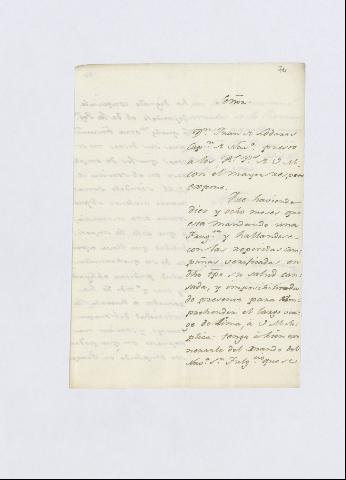 Señor
Dn. Juan de Lodares
Capn. de Navo. puesto
a los Rs. Ps. de V. M.
con el mayor respeto
expone:
Que haviendo
diez y ocho meses que
esta mandando una
Fragta. y hallandose
con las repetidas cam
pañas verificadas en
dho tpo su salud can
sada, y imposibilitado
de presente para em
prehender el largo via
ge de Lima, a V. M. su
plica: tenga à bien exo
nerarle del mando del
Navo. Sn. que se